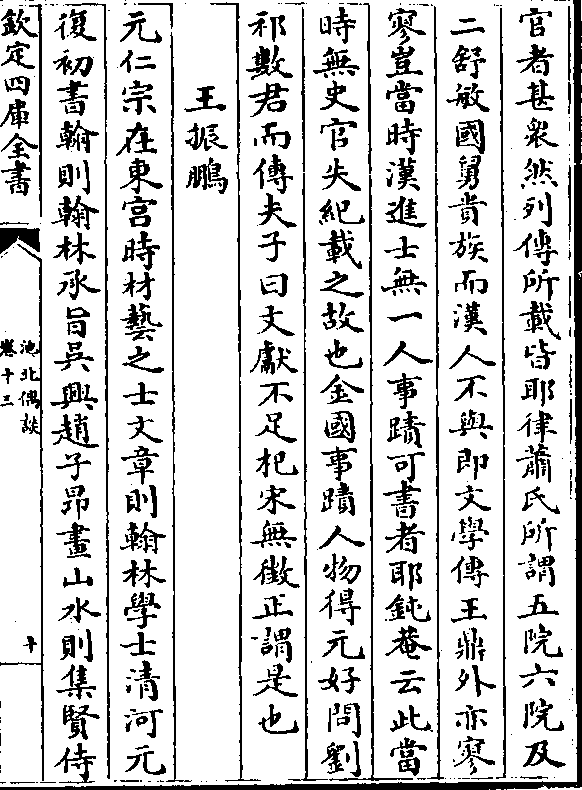 官者甚衆然列傳所載皆耶律蕭氏所謂五院六院及
二舒敏國舅貴族而漢人不與即文學傳王鼎外亦寥
寥豈當時漢進士無一人事蹟可書者耶鈍菴云此當
時無史官失紀載之故也金國事蹟人物得元好問劉
祁數君而傳夫子曰文獻不足杞宋無徵正謂是也
王振鵬
元仁宗在東宮時材藝之士文章則翰林學士清河元
復初書翰則翰林承旨吳興趙子昂畫山水則集賢侍
欽定四庫全書
池北偶談
卷十三
十